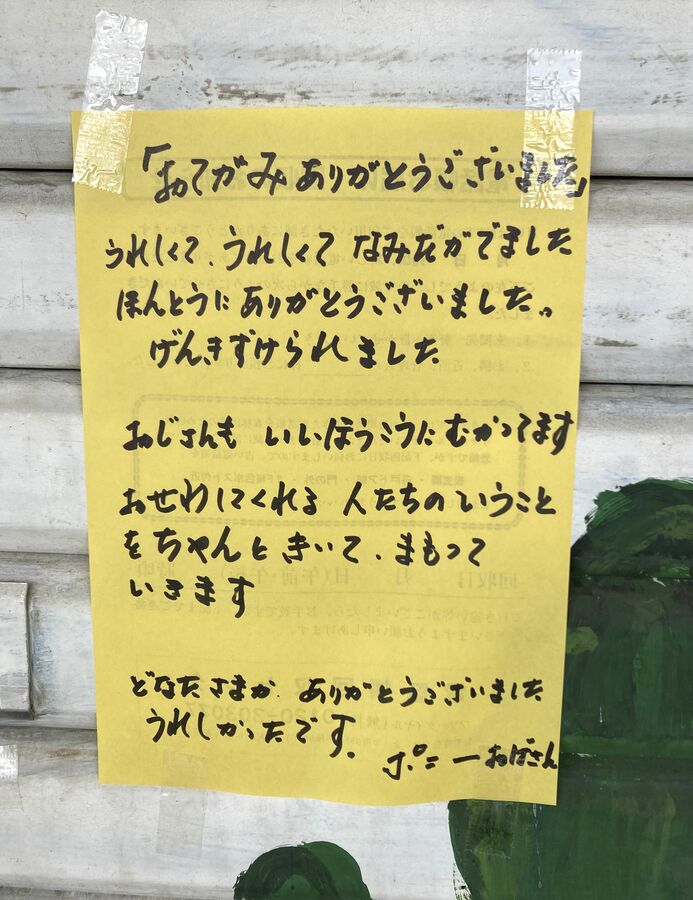 「おてがみありがとうございました」
うれしくて うれしくて なみだがでました
ほんとうにありがとうございました。
げんきずけられました
おじさんも いいほうこうにむかってます
おせわしてくれる 人たちのいうこと
をちゃんときいて、まもって
いきます
どなたさまか ありがとうございました
うれしかったです。
ポニーおばさん